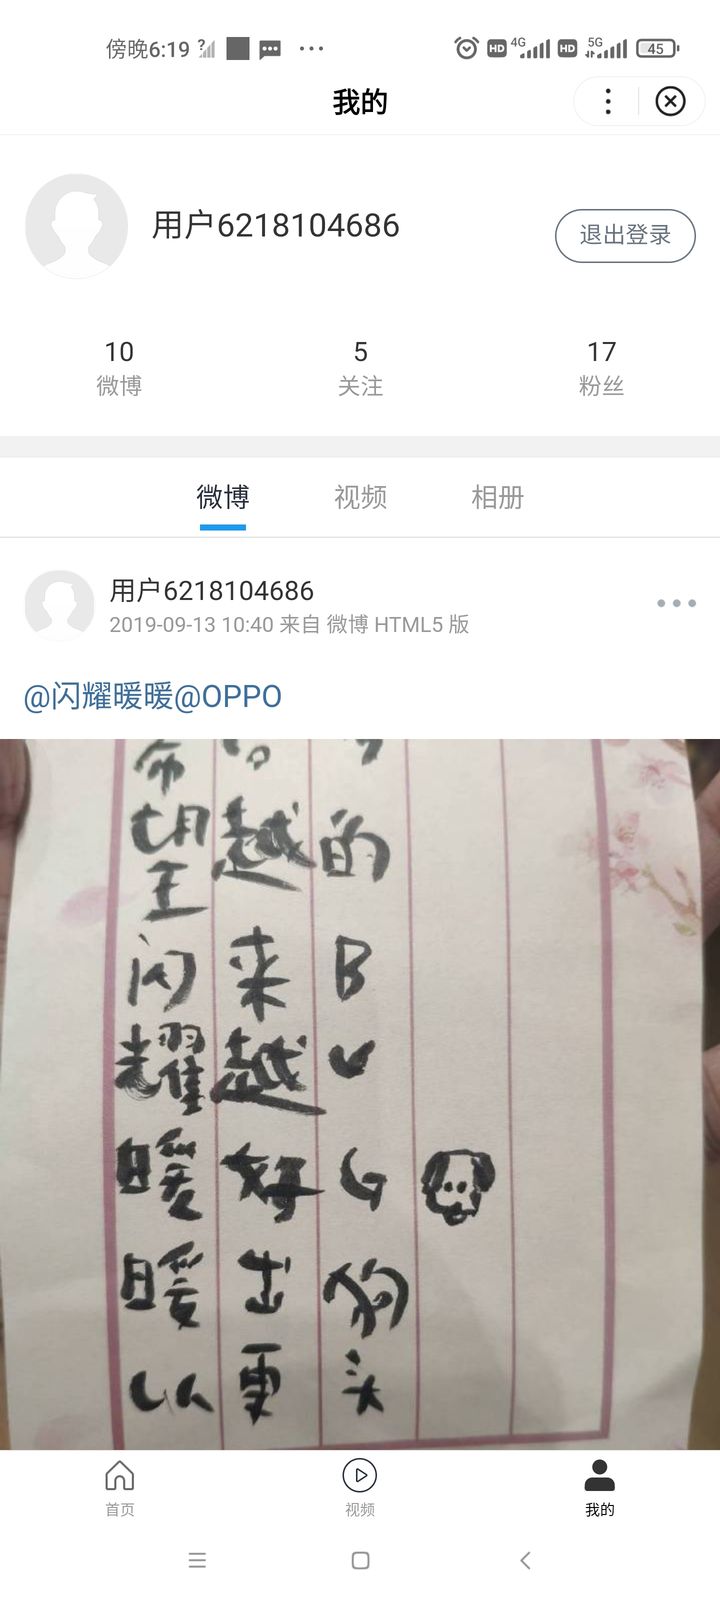 傍晚6:19
HD 4G HD 5G 45
我的
用户6218104686
退出登录
10 5 17
微博 关注 粉丝
微博 视频 相册
用户6218104686
2019-09-13 10:40 来自 微博 HTML5 版
@闪耀暖暖@OPPO
希望闪耀暖暖以
越来越好出更
的BUG狗头
首页 视频 我的